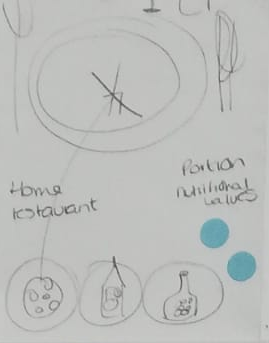 Home
restaurant
Portion
nutritional
values